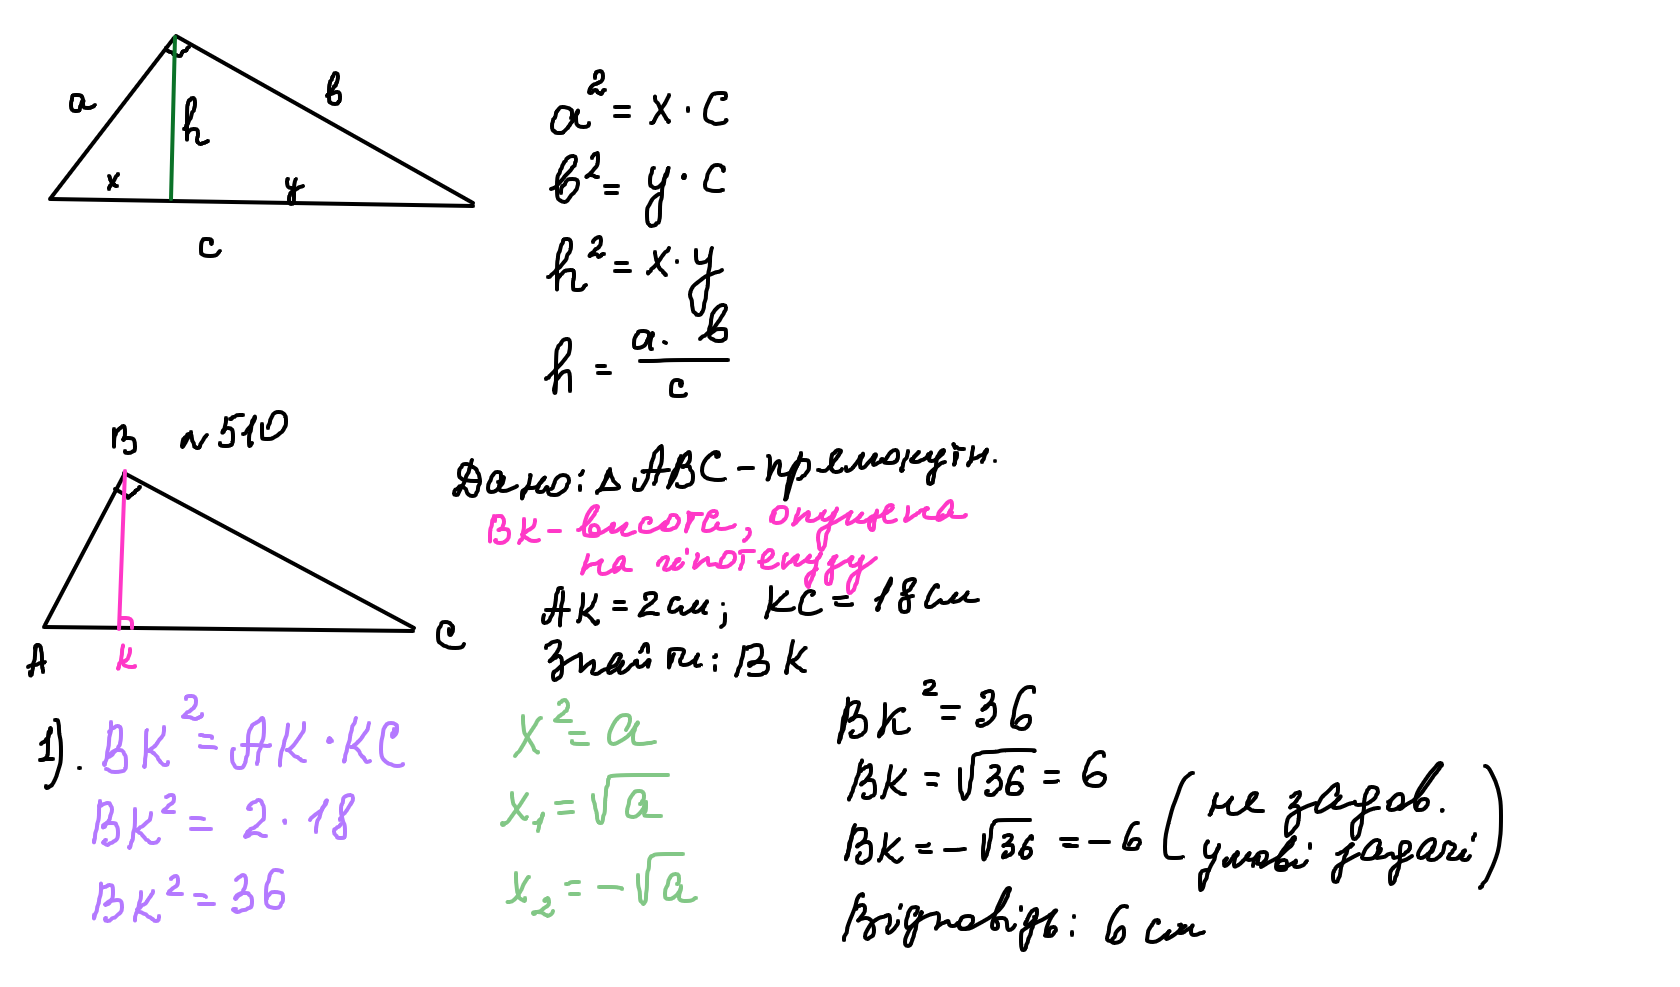 a
h
в
x
y
c
a² = x · c
в² = y · c
h² = x · y
h = a · в / c
N 510
B
A
K
C
Дано: Δ ABC – прямокутн.
BK – висота, опущена
на гіпотенузу
AK = 2 см; KC = 18 см
Знайти: BK
1). BK² = AK · KC
BK² = 2 · 18
BK² = 36
x² = a
x₁ = √a
x₂ = –√a
BK² = 36
BK = √36 = 6
BK = –√36 = –6 (не задов. умові задачі)
Відповідь: 6 см